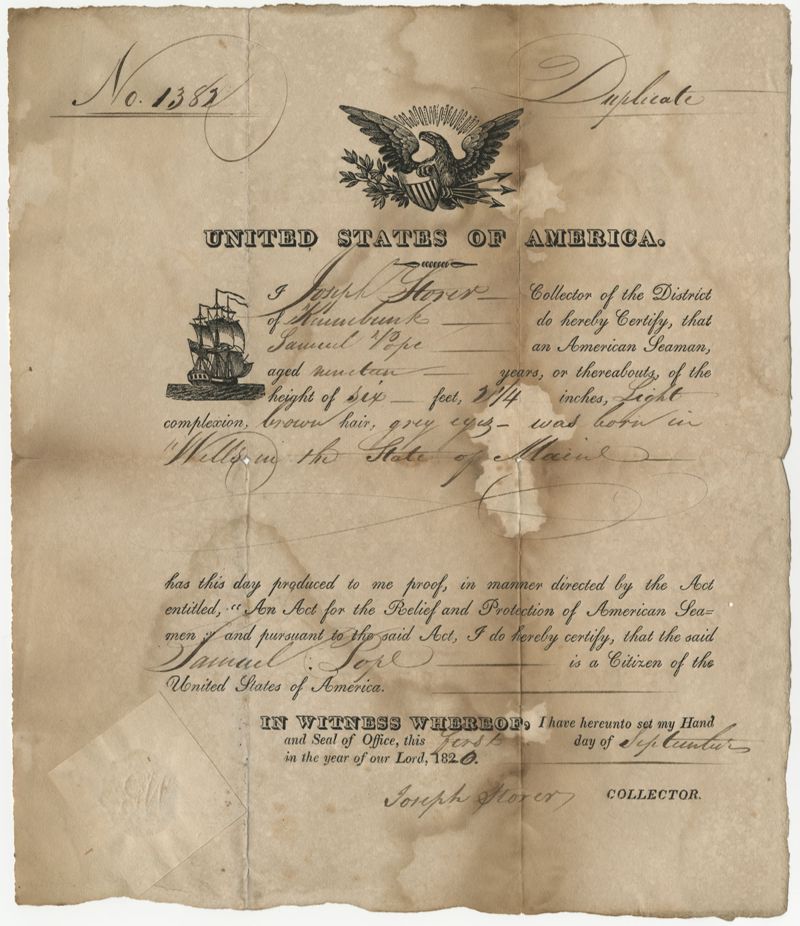 No. 1382
Duplicate
UNITED STATES OF AMERICA.
I Joseph Storer Collector of the District
of Kennebunk do hereby Certify, that
Samuel Pope an American Seaman,
aged nineteen years, or thereabouts, of the
height of six feet, 2 1/4 inches, Light
complexion, brown hair, grey eyes - was born in
Wells in the State of Maine
has this day produced to me proof, in manner directed by the Act
entitled, "An Act for the Relief and Protection of American Sea=
men;" and pursuant to the said Act, I do hereby certify, that the said
Samuel Pope is a Citizen of the
United States of America.
IN WITNESS WHEREOF, I have hereunto set my Hand
and Seal of Office, this first day of September
in the year of our Lord, 1820.
Joseph Storer COLLECTOR.